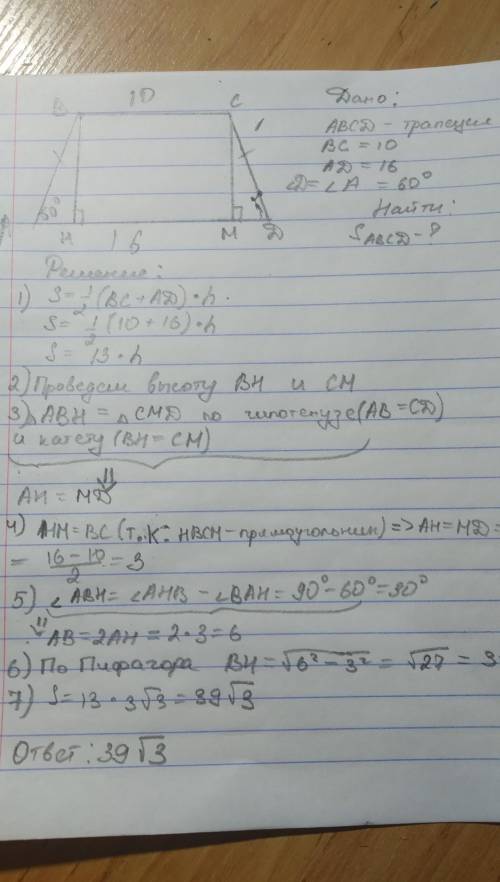 B 10 C
Дано:
ABCD - трапеция
BC = 10
AD = 16
∠D = ∠A = 60°
Найти:
S ABCD - ?
60°
H 16 M D
Решение:
1) S = 1/2 (BC + AD) · h.
S = 1/2 (10 + 16) · h
S = 13 · h
2) Проведем высоту BH и CM
3) △ABH = △CMD по гипотенузе (AB = CD)
и катету (BH = CM)
⇓
AH = MD
4) HM = BC (т.к. HBCM - прямоугольник) => AH = MD =
= (16 - 10)/2 = 3
5) ∠ABH = ∠AHB - ∠BAH = 90° - 60° = 30°
⇓ AB = 2AH = 2 · 3 = 6
6) По Пифагора BH = √(6² - 3²) = √27 = 3
7) S = 13 · 3√3 = 39√3
Ответ: 39√3